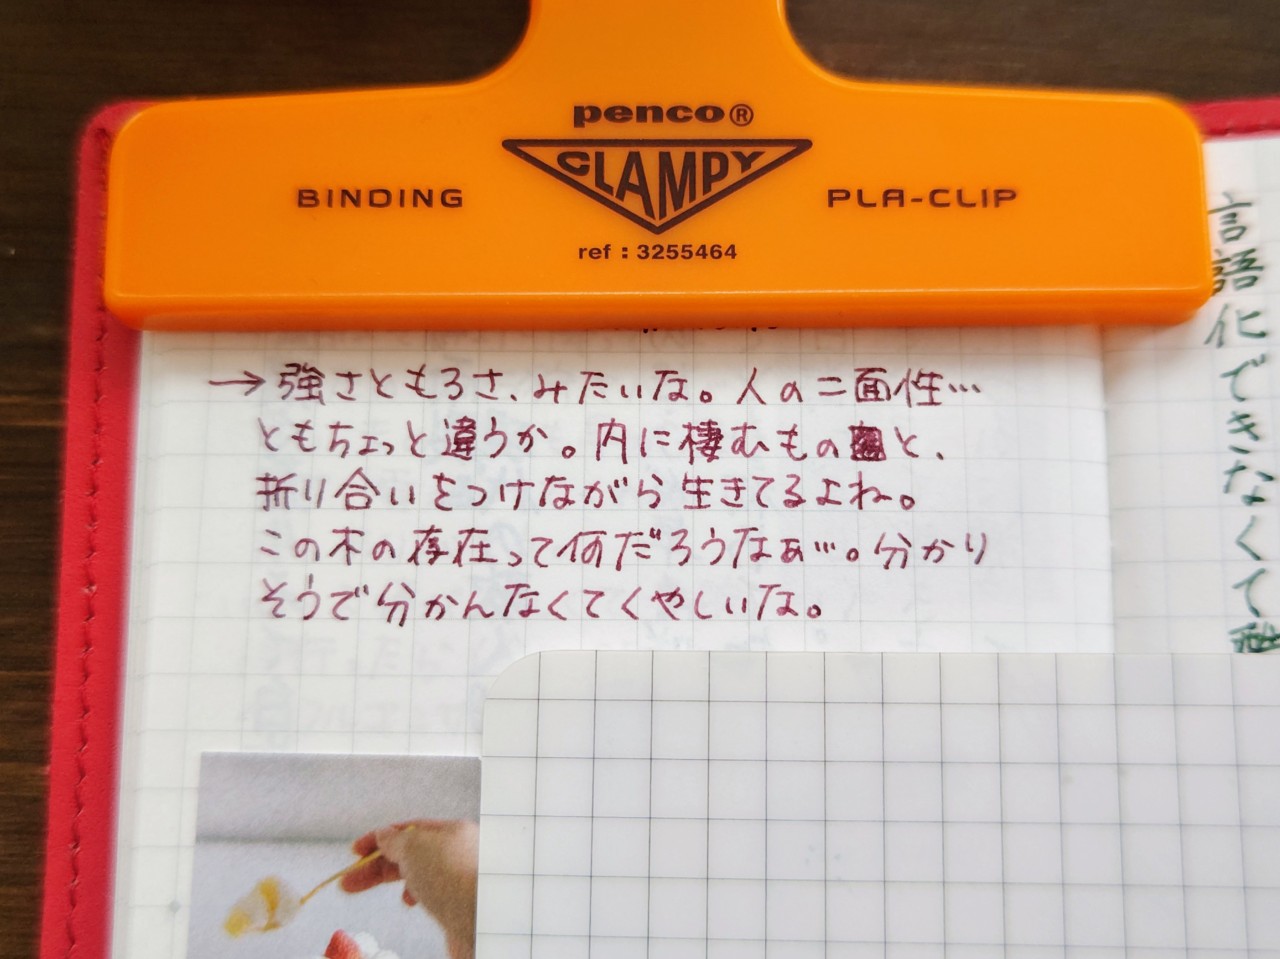 penco®
CLAMPY
BINDING
PLA-CLIP
ref : 3255464
→強さともろさ、みたいな。人の二面性…
ともちょっと違うか。内に棲むものと、
折り合いをつけながら生きてるよね。
この本の存在って何だろうなぁ…。分かり
そうで分かんなくてくやしいな。
言語化できなくて